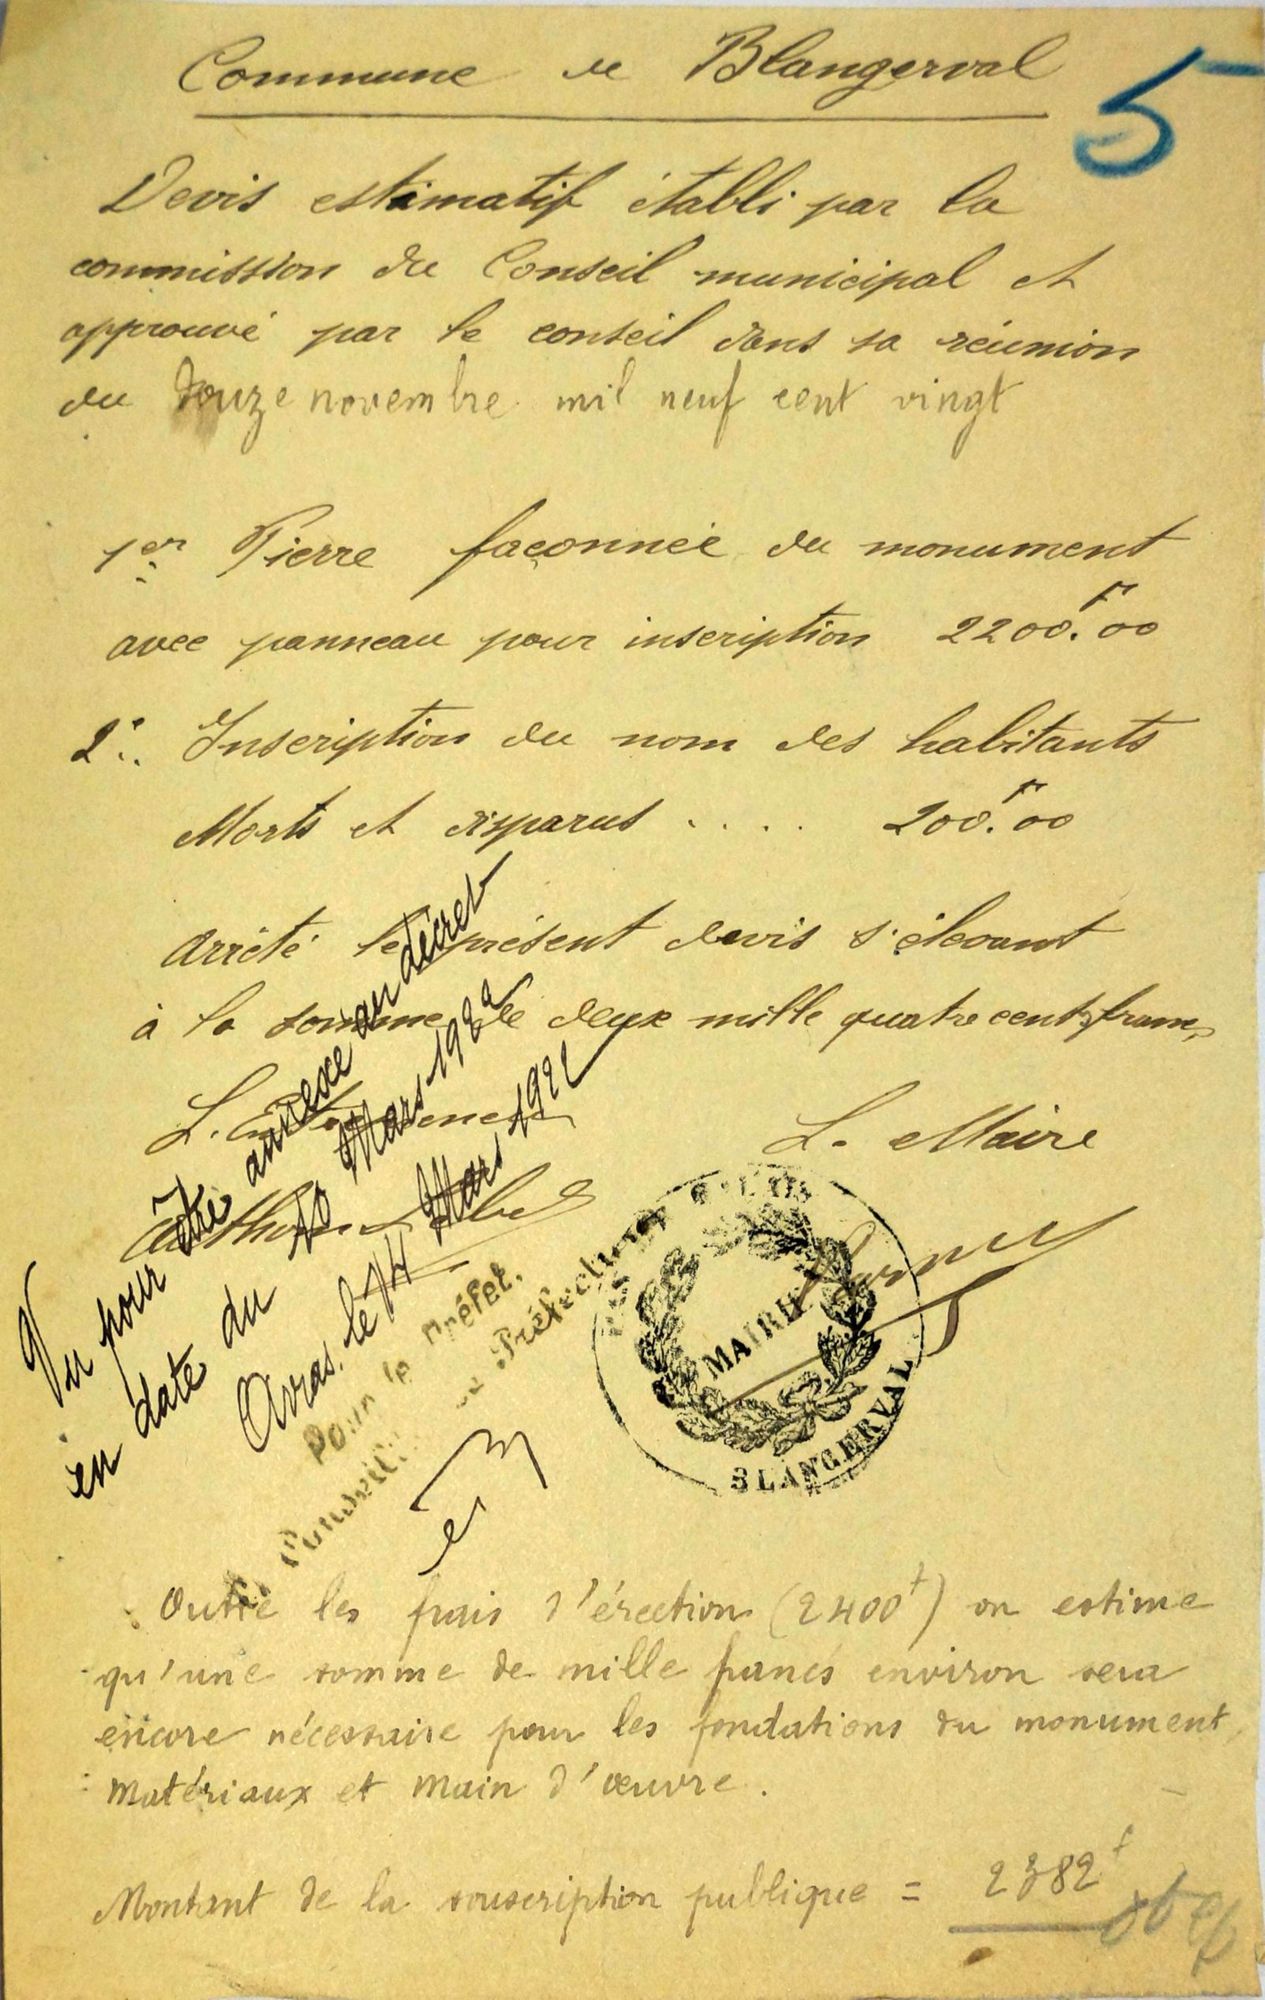 Commune de Blangerval
5
Devis estimatif établi par la
commission du Conseil municipal et
approuvé par le conseil dans sa réunion
du douze novembre mil neuf cent vingt
1er Pierre façonnée du monument
avec panneau pour inscription 2200f.00
2°. Inscription du nom des habitants
Morts et disparus .... 200f.00
Arrêté le présent devis s'élevant
à la somme de deux mille quatre cents francs
L. Entrepreneur
Le Maire
Vu pour être annexé au décret
en date du 10 Mars 1922
Arras, le 14 Mars 1922
Pour le Préfet,
MAIRIE
BLANGERVAL
Outre les frais d'érection (2400f) on estime
qu'une somme de mille francs environ sera
encore nécessaire pour les fondations du monument,
matériaux et main d'œuvre.
Montant de la souscription publique = 2382f